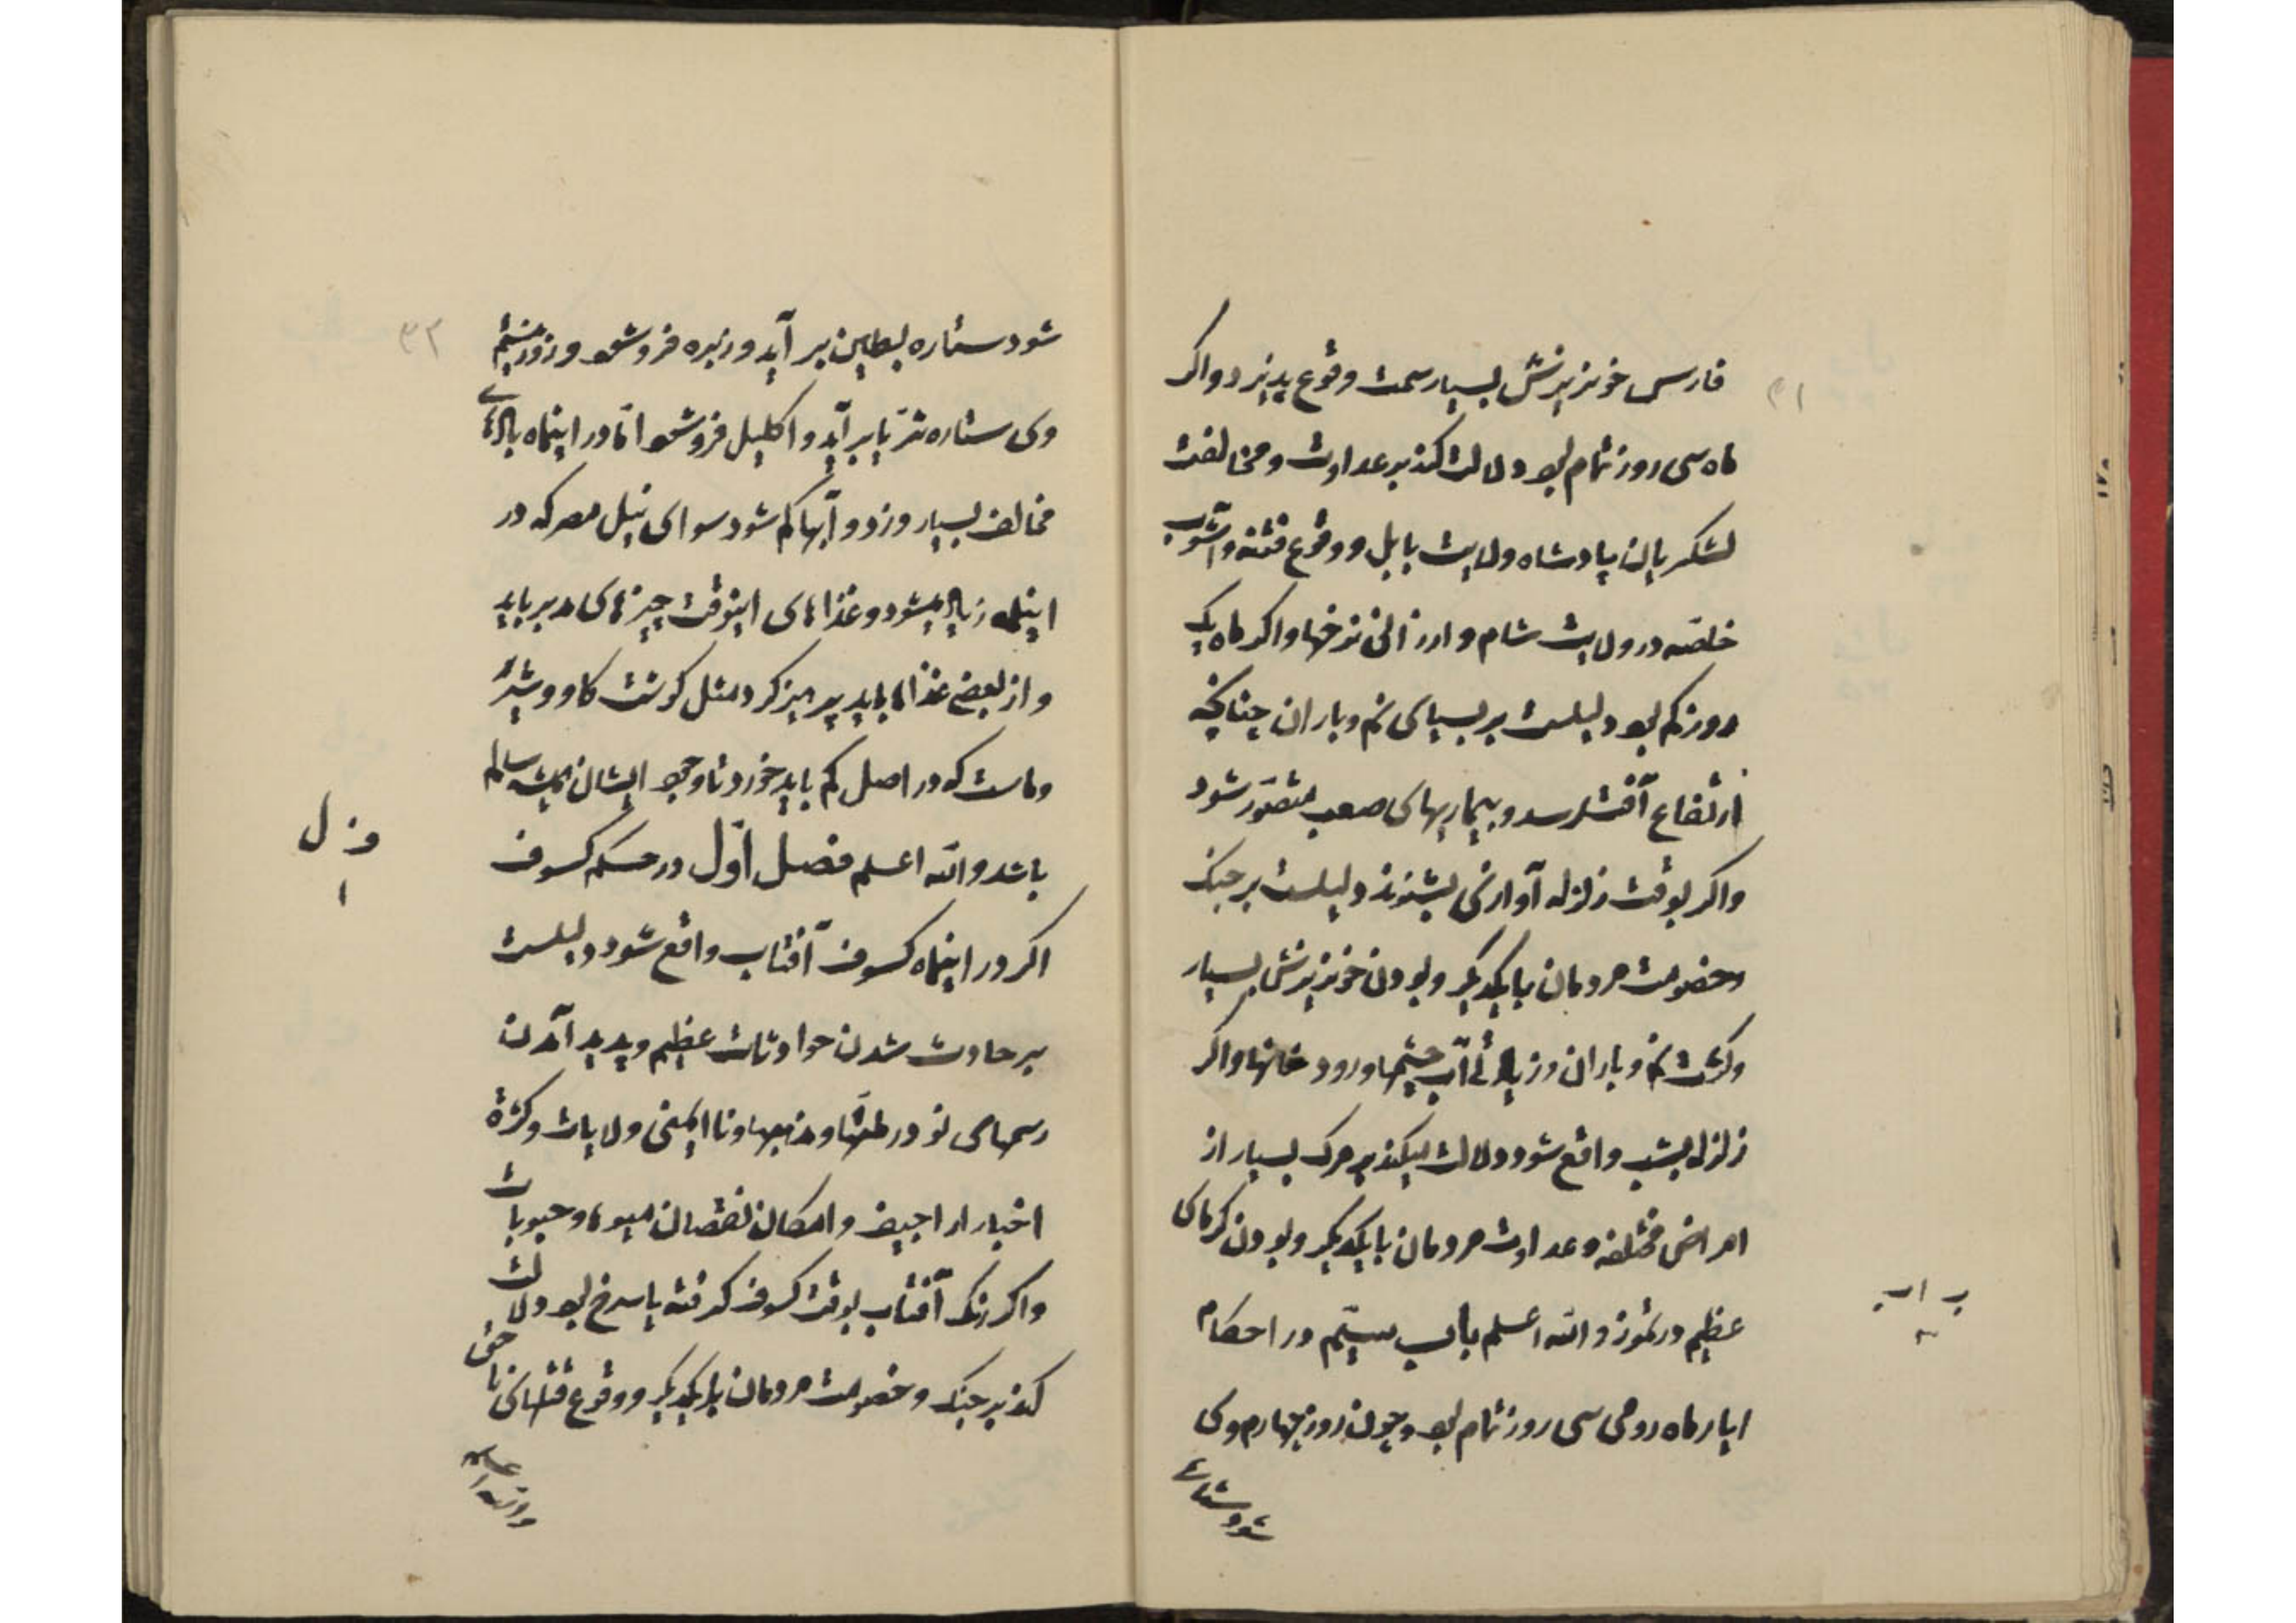 ۳۱
فارس خونریزش بسیار سمت وقوع پذیرد و اکر
ماه سی روز تمام بود دلالت کند بر عداوت و مخالفت
لشکریان پادشاه ولایت بابل و وقوع فتنه و آشوب
خاصّه در ولایت شام و ارزانی نرخها و اکر ماه یک
روز کم بود دلیلست بر بسیای نم و باران چنانچه
ارتفاع آفت رسد و بیماریهای صعب متصوّر شود
و اکر بوقت زلزله آوازی بشنوند دلیلست بر جنک
و خصومت مردمان بایکدیکر و بودن خونریزش بسیار
و کثرت نم و باران و زیادتی آب چشمها و رودخانها و اکر
زلزله بشب واقع شود دلالت میکند بر مرک بسیار از
امراض مختلفه و عداوت مردمان بایکدیکر و بودن کرمای
عظیم در تموز و الله اعلم باب بیستم در احکام
ایار ماه رومی سی روز تمام بود و چون روز چهارم وی
شود ستاره
باب
۲۰
۳۲
شود ستاره بطین بر آید و زبره فرو شود و روز بیستم
وی ستاره ثریّا بر آید و اکلیل فرو شود امّا در اینماه بادهای
مخالف بسیار وزد و آبها کم شود سوای نیل مصر که در
اینماه زیاد میشود و غذاهای اینوقت چیزهای مدبر باید
و از بعضی غذاها باید پرهیز کرد مثل کوشت کاو و شیر
و ماست که در اصل کم باید خورد تا وجود ایشان همیشه سالم
باشد و الله اعلم فصل اوّل در حکم کسوف
اکر در اینماه کسوف آفتاب واقع شود دلیلست
بر حادث شدن حوادثات عظیم و پدید آمدن
رسمهای نو در ملتها و مذهبها و ناایمنی ولایات و کثرة
اخبار اراجیف و امکان نقصان میوها و حبوبات
و اکر رنک آفتاب بوقت کسوف کرفته یا سرخ بود دلالت
کند بر جنک و خصومت مردمان بایکدیکر و وقوع قتلهای ناحق
و الله اعلم
ف ل
۱